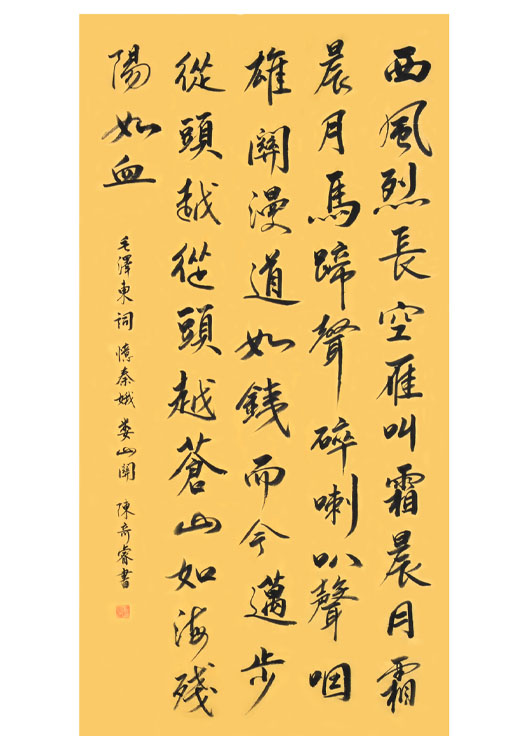 西風烈長空雁叫霜晨月霜
晨月馬蹄聲碎喇叭聲咽
雄關漫道如鐵而今邁步
從頭越從頭越蒼山如海殘
陽如血
毛澤東詞憶秦娥婁山關 陳奇睿書